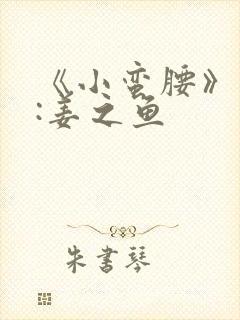 《小蛮腰》
:姜之鱼
朱书琴